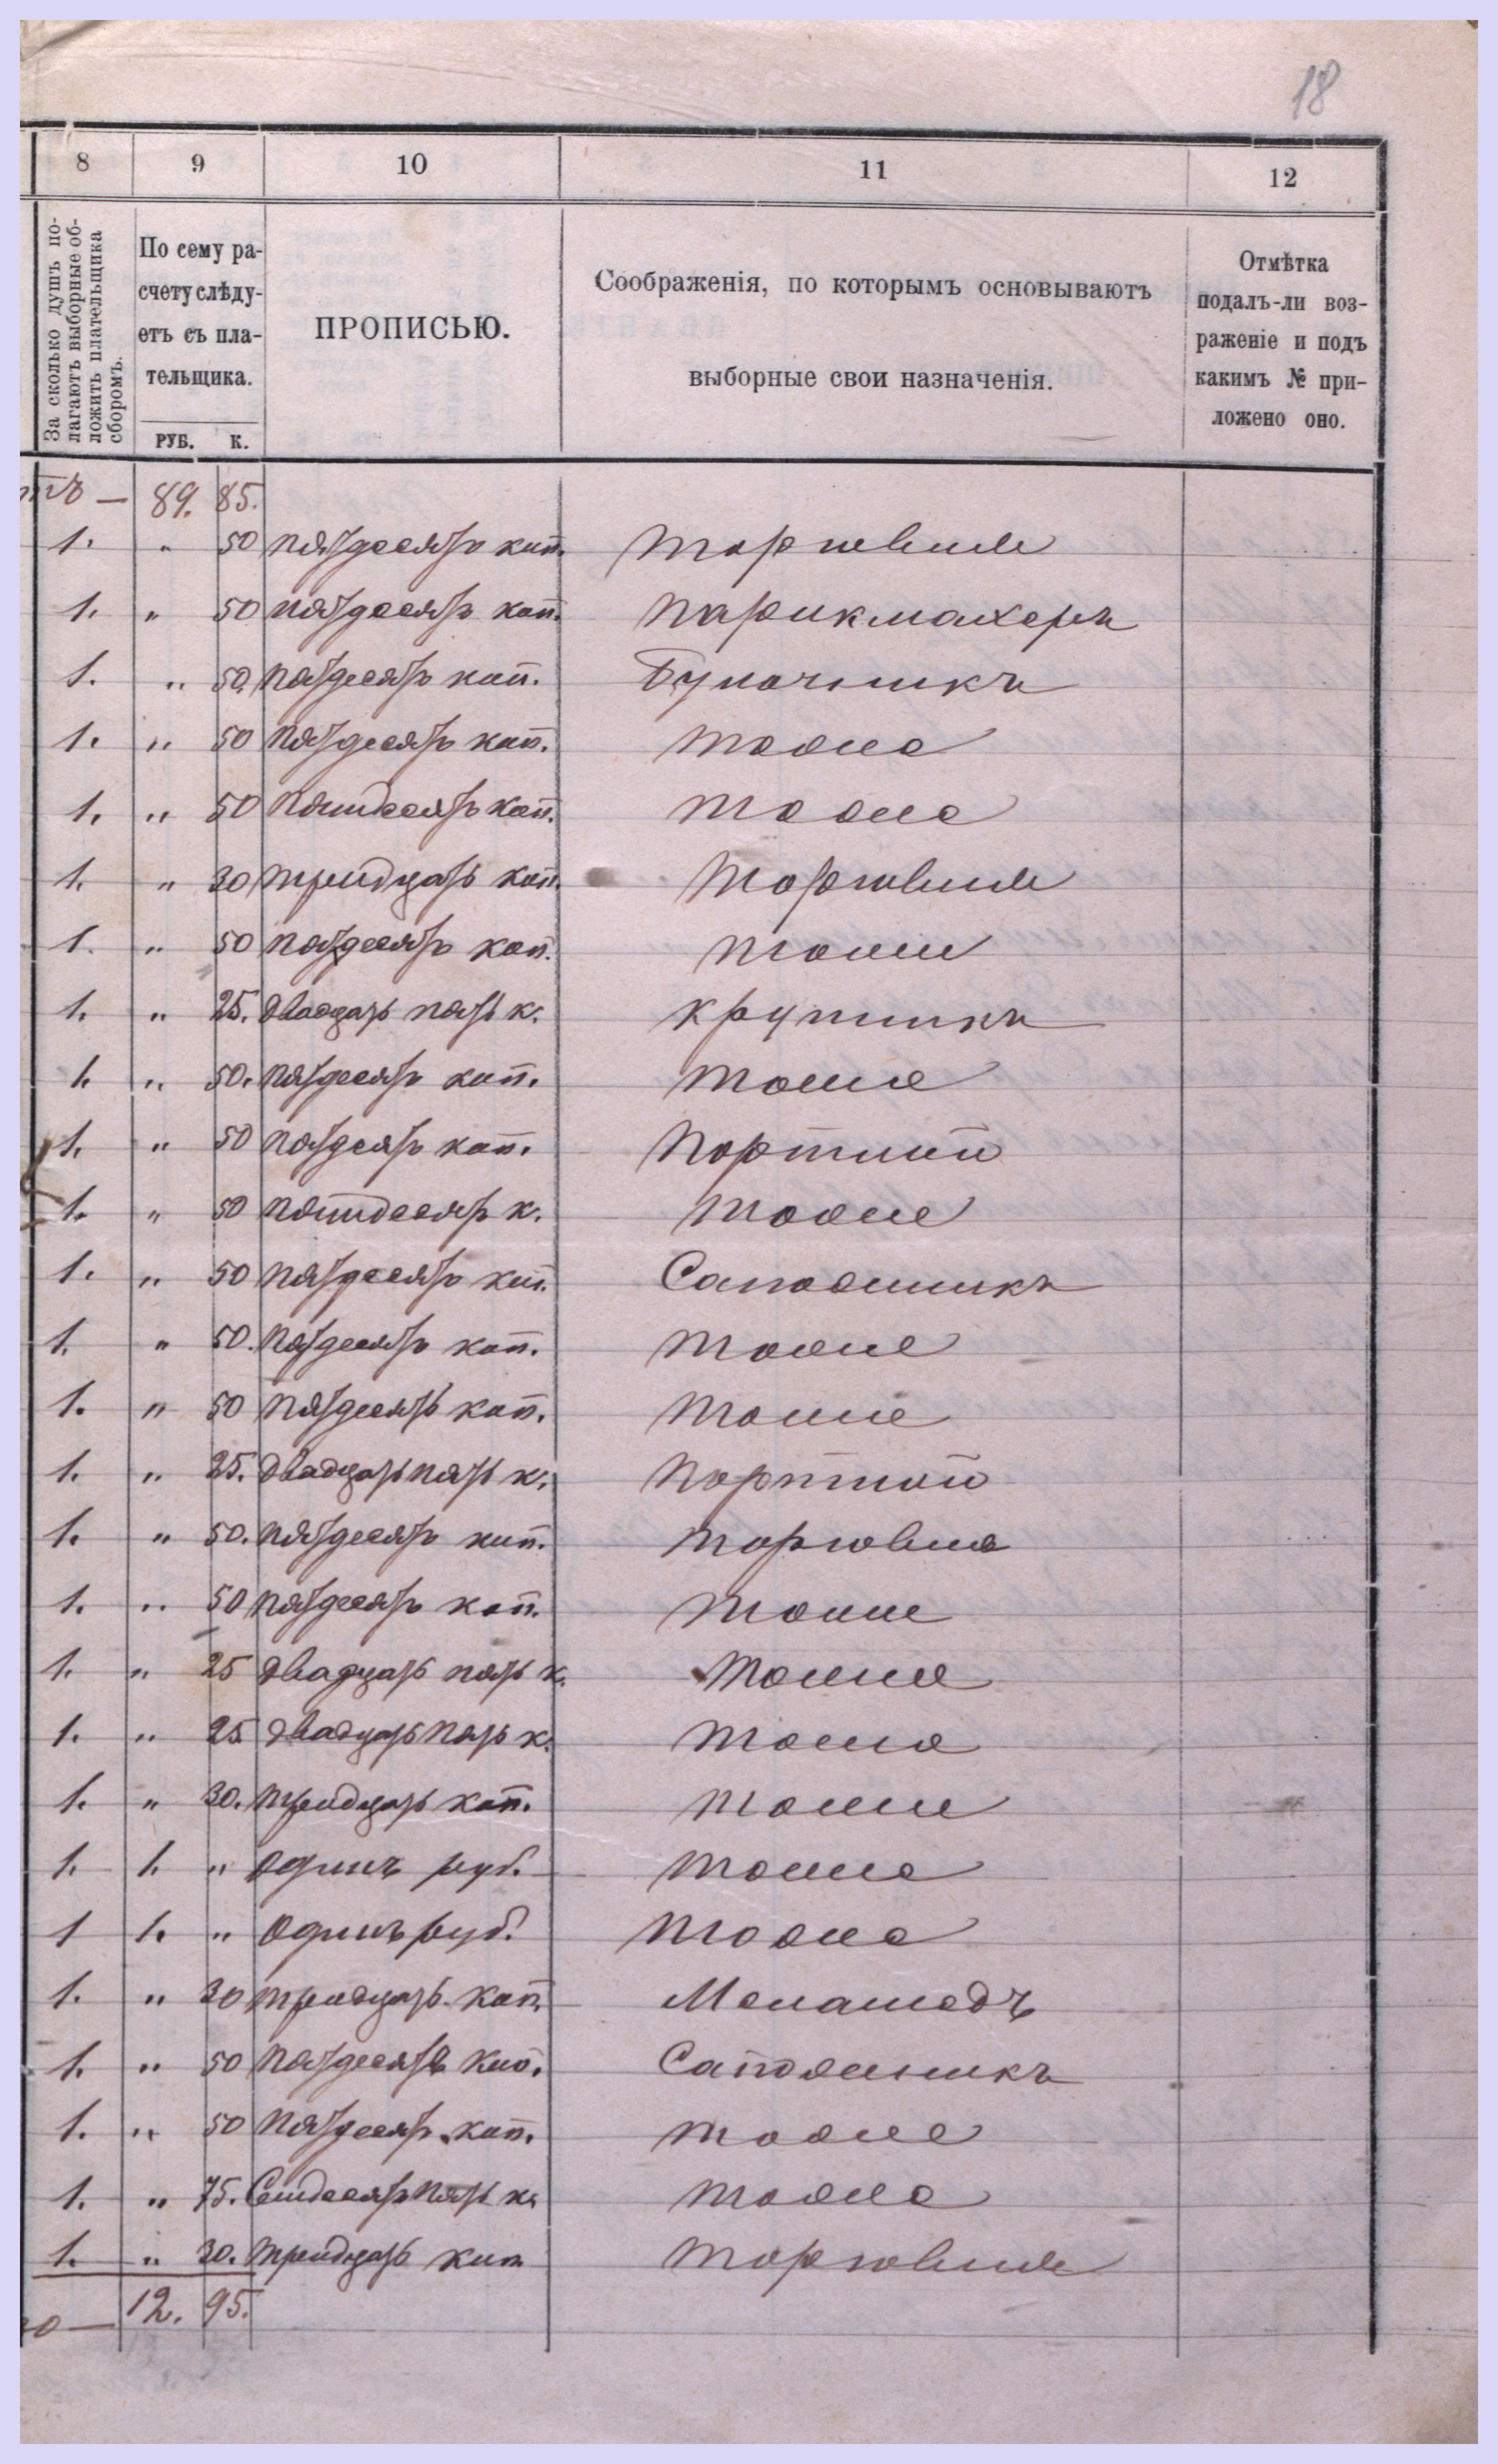 18
8 9 10 11 12
За сколько душъ по-
лагаютъ выборные об-
ложить плательщика
сборомъ.
По сему ра-
счету слѣду-
етъ съ пла-
тельщика.
РУБ. К.
ПРОПИСЬЮ.
Соображенія, по которымъ основываютъ
выборные свои назначенія.
Отмѣтка
подалъ-ли воз-
раженіе и подъ
какимъ № при-
ложено оно.
— 89. 85.
1. " 50 пятдесять коп. торговля
1. " 50 пятдесять коп. парикмахеръ
1. " 50 пятдесять коп. Булочникъ
1. " 50 пятдесять коп. тоже
1. " 50 пятдесять коп. тоже
1. " 30 тридцать коп. торговля
1. " 50 пятдесять коп. тоже
1. " 25. двадцать пять к. крупникъ
1. " 50. пятдесять коп. тоже
1. " 50 пятдесять коп. портной
1. " 50 пятдесять к. тоже
1. " 50 пятдесять коп. Сапожникъ
1. " 50. пятдесять коп. тоже
1. " 50 пятдесять коп. тоже
1. " 25. двадцать пять к. портной
1. " 50. пятдесять коп. торговля
1. " 50 пятдесять коп. тоже
1. " 25 двадцать пять к. тоже
1. " 25 двадцать пять к. тоже
1. " 30. тридцать коп. тоже
1. 1. " одинъ руб. тоже
1 1. " одинъ руб. тоже
1. " 30 тридцать коп. Меламедъ
1. " 50 пятдесять коп. Сапожникъ
1. " 50 пятдесять коп. тоже
1. " 75. Семдесять пять к. тоже
1. " 30. тридцать коп торговля
— 12. 95.